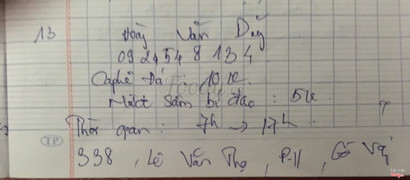 13 Văn Duy
0924548134
Caphê Đá : 10k
Foody
Nước Sâm bí đao : 5k
Thời gian : 7h → 17h
338, Lê Văn Thọ, P-11, Gò Vấp